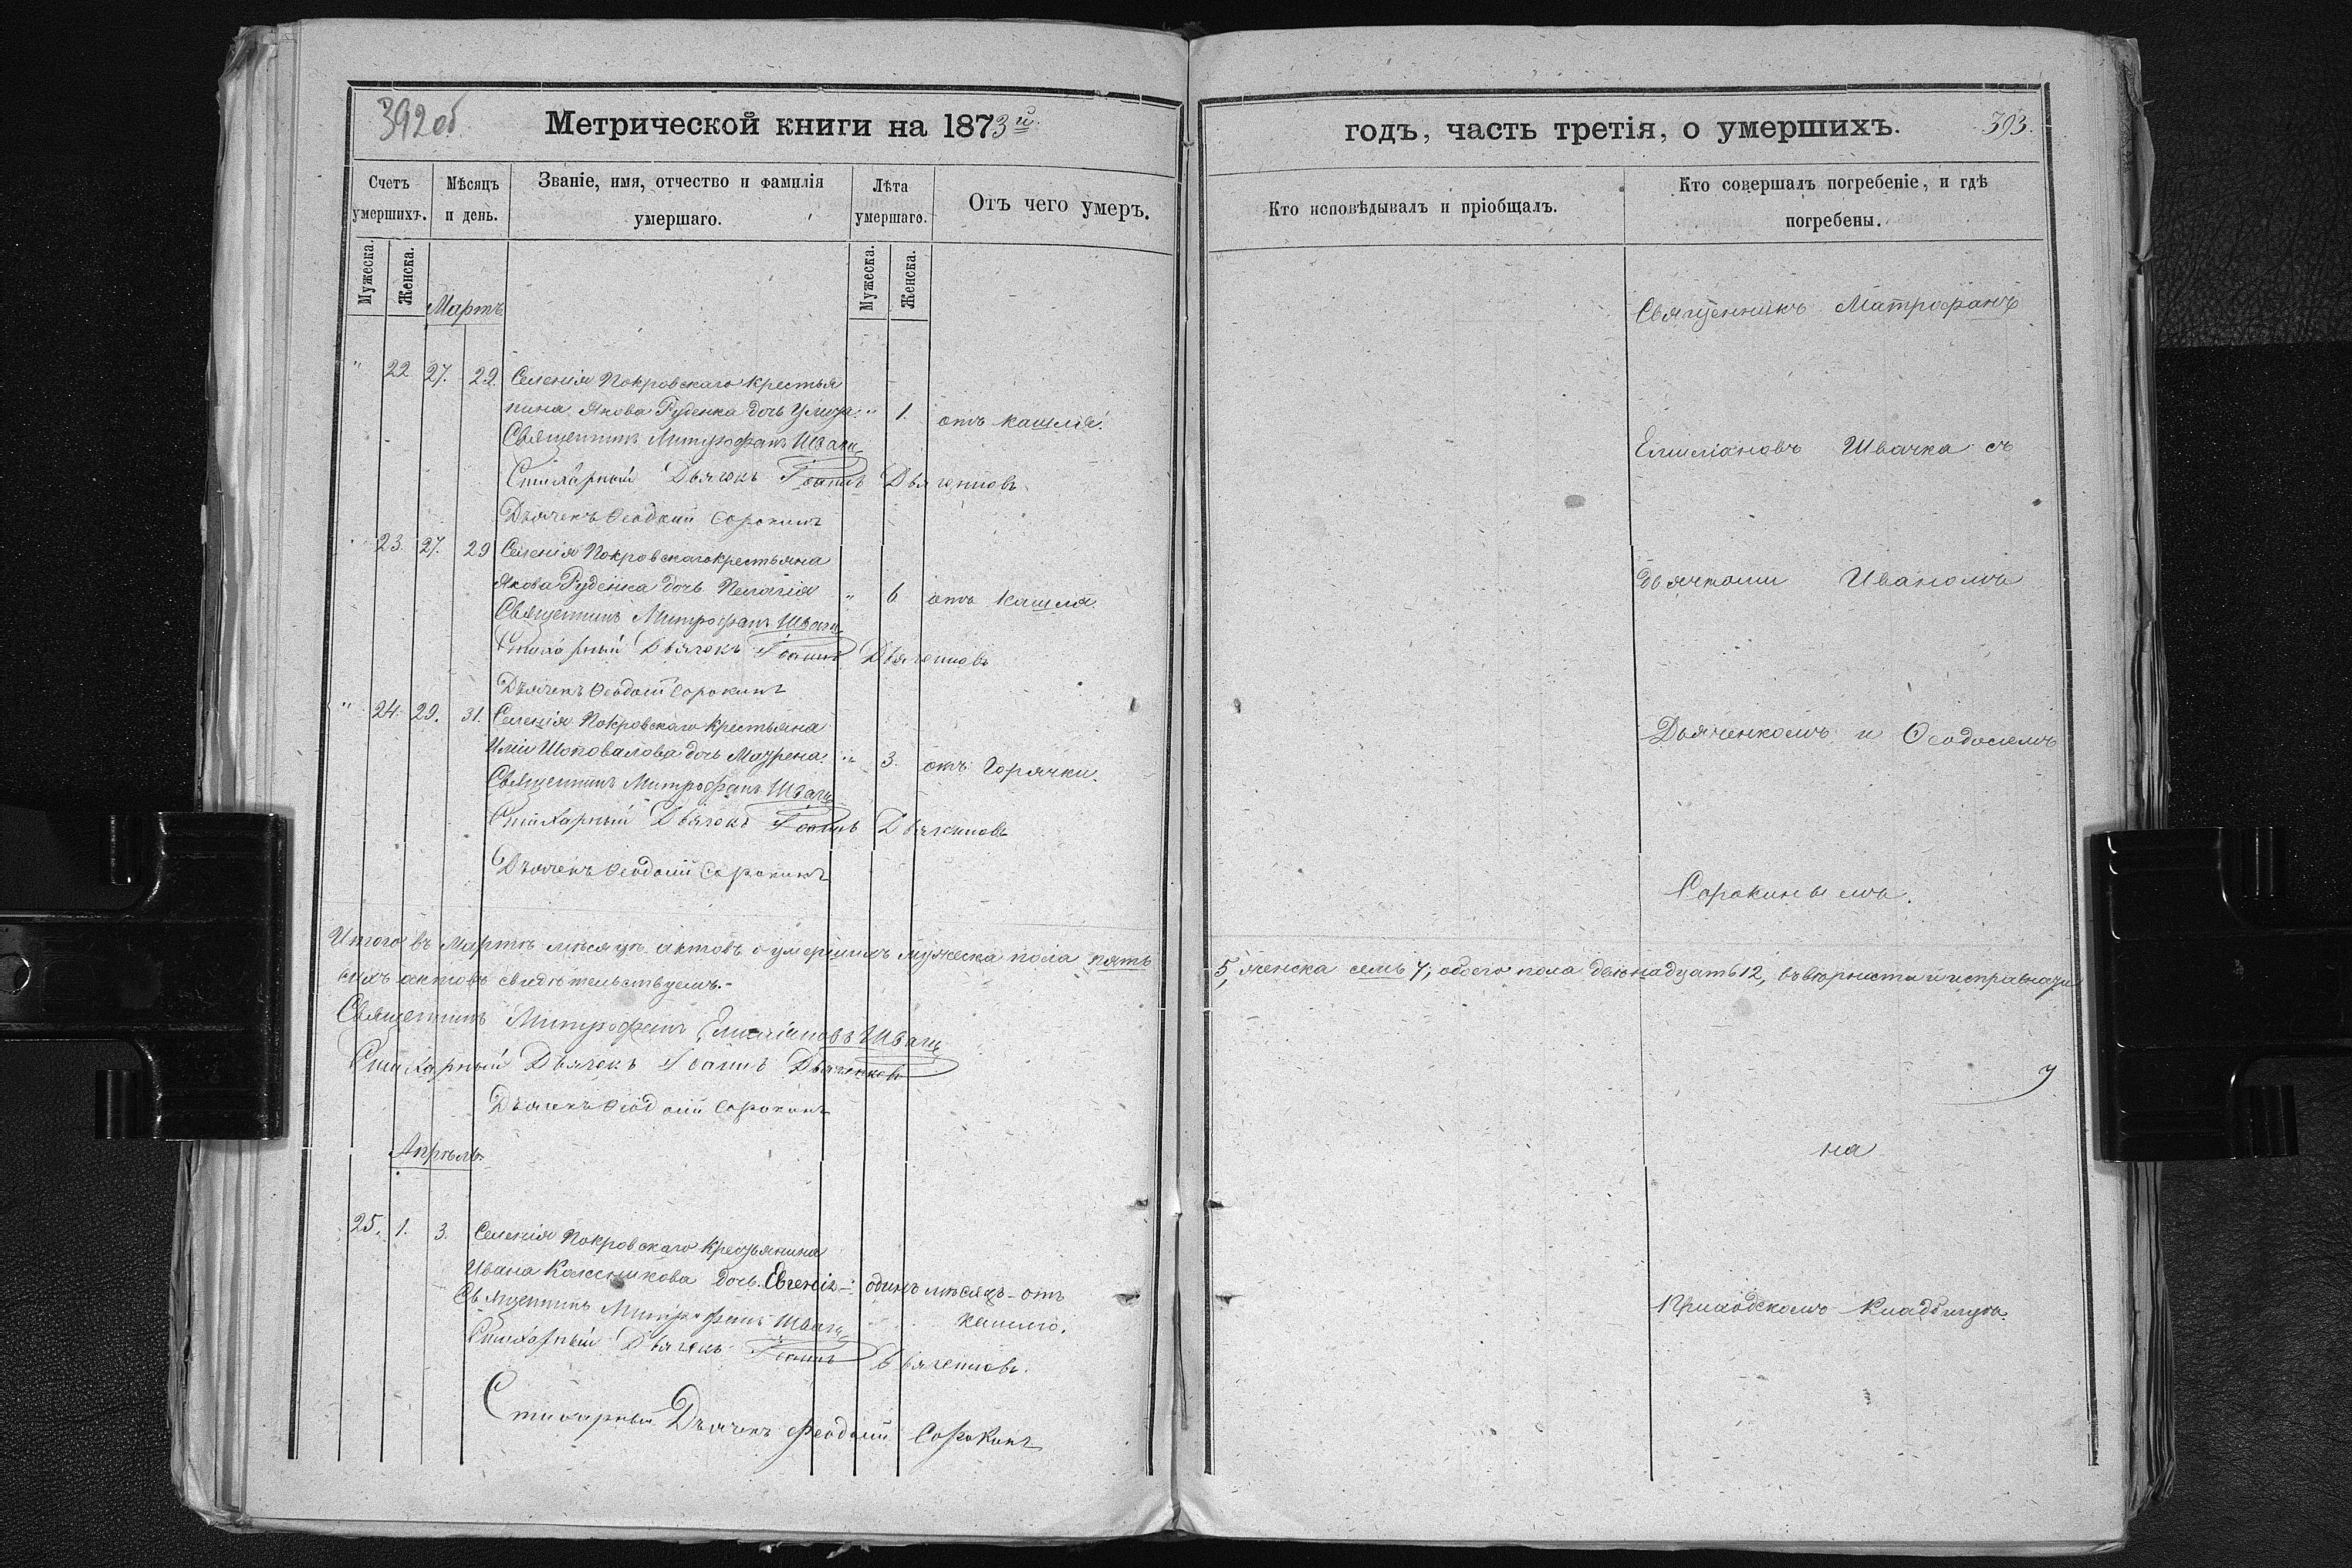 392 об
Метрической книги на 1873й
годъ, часть третія, о умершихъ.
393.
Счетъ умершихъ.
Мѣсяцъ и день.
Званіе, имя, отчество и фамилія умершаго.
Лѣта умершаго.
Отъ чего умеръ.
Кто исповѣдывалъ и пріобщалъ.
Кто совершалъ погребеніе, и гдѣ погребены.
Мужеска.
Женска.
Мужеска.
Женска.
Мартъ
" 22 27. 29. Селенія Покровскаго крестья
нина Якова Руденка дочь " 1. отъ кашля.
Священникъ Митрофанъ Швачка
Стихарный Дьячокъ Іоаннъ Дьяченковъ
Дьячекъ Ѳеодосій Сорокинъ
" 23. 27. 29 Селенія Покровскаго крестьяна
Якова Руденка дочь Пелагія " 6 отъ кашля.
Священникъ Митрофанъ Швачка
Стихарный Дьячокъ Іоаннъ Дьяченковъ
Дьячекъ Ѳеодосій Сорокинъ
" 24. 29. 31. Селенія Покровскаго крестьяна
Иліи Шоповалова дочь Мотрена. " 3. отъ горячки.
Священникъ Митрофанъ Швачка
Стихарный Дьячокъ Іоаннъ Дьяченковъ
Дьячекъ Ѳеодосій Сорокинъ
Итого въ мартѣ мѣсяцѣ актовъ о умершихъ мужеска пола пять 5, женска семь 7, обоего пола двѣнадцать 12, въ вѣрности и исправности
сихъ актовъ свидѣтельствуемъ.-
Священникъ Митрофанъ Емиліановъ Швачка
Стихарный Дьячокъ Іоаннъ Дьяченковъ
Дьячекъ Ѳеодосій Сорокинъ
Апрѣль
25. 1. 3. Селенія Покровскаго крестьянина
Ивана дочь Евгенія - одинъ мѣсяцъ - отъ
кашлю.
Священникъ Митрофанъ Швачка
Стихарный Дьячокъ Іоаннъ Дьяченковъ.
Стихарный Дьячекъ Феодосій Сорокинъ
Священникъ Матрофанъ
Емиліановъ Швачка съ
дьячками Иваномъ
Дьяченкомъ и Ѳеодосіемъ
Сорокинымъ.
на
Приходскомъ кладбищѣ.